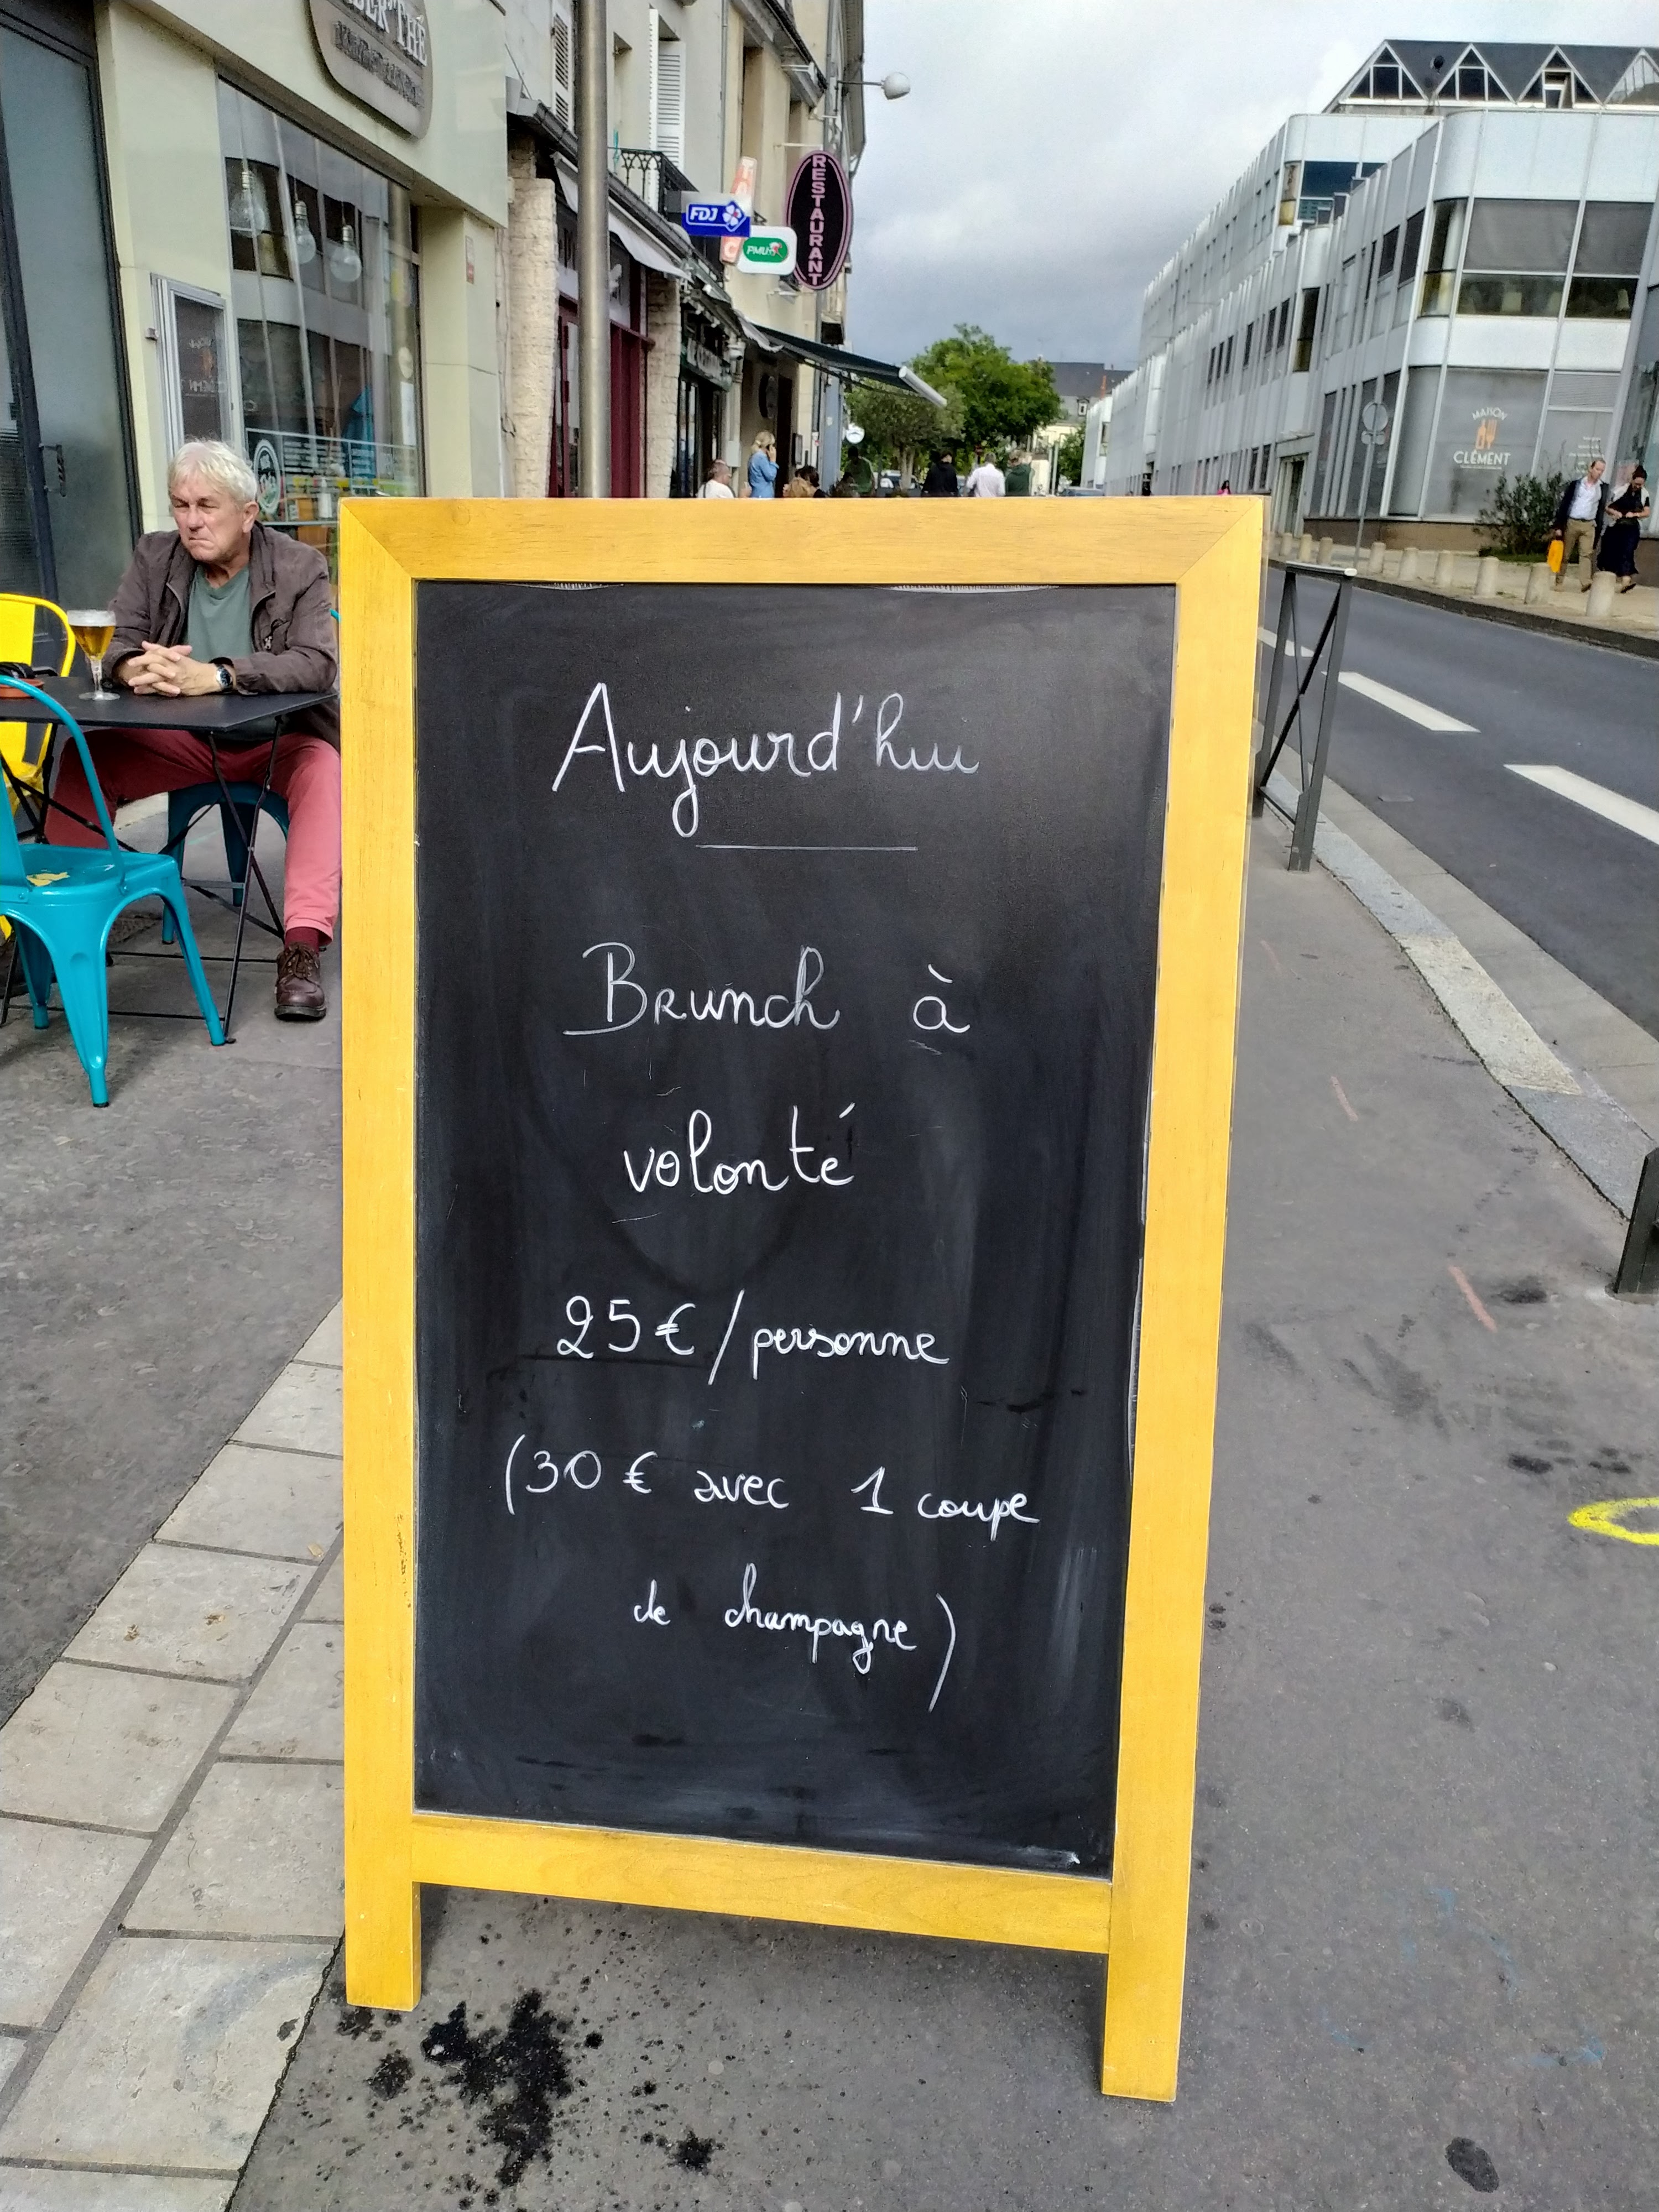 THÉ
FDJ
PMU
RESTAURANT
MAISON
CLÉMENT
Aujourd'hui
Brunch à
volonté
25€/personne
(30€ avec 1 coupe
de champagne)